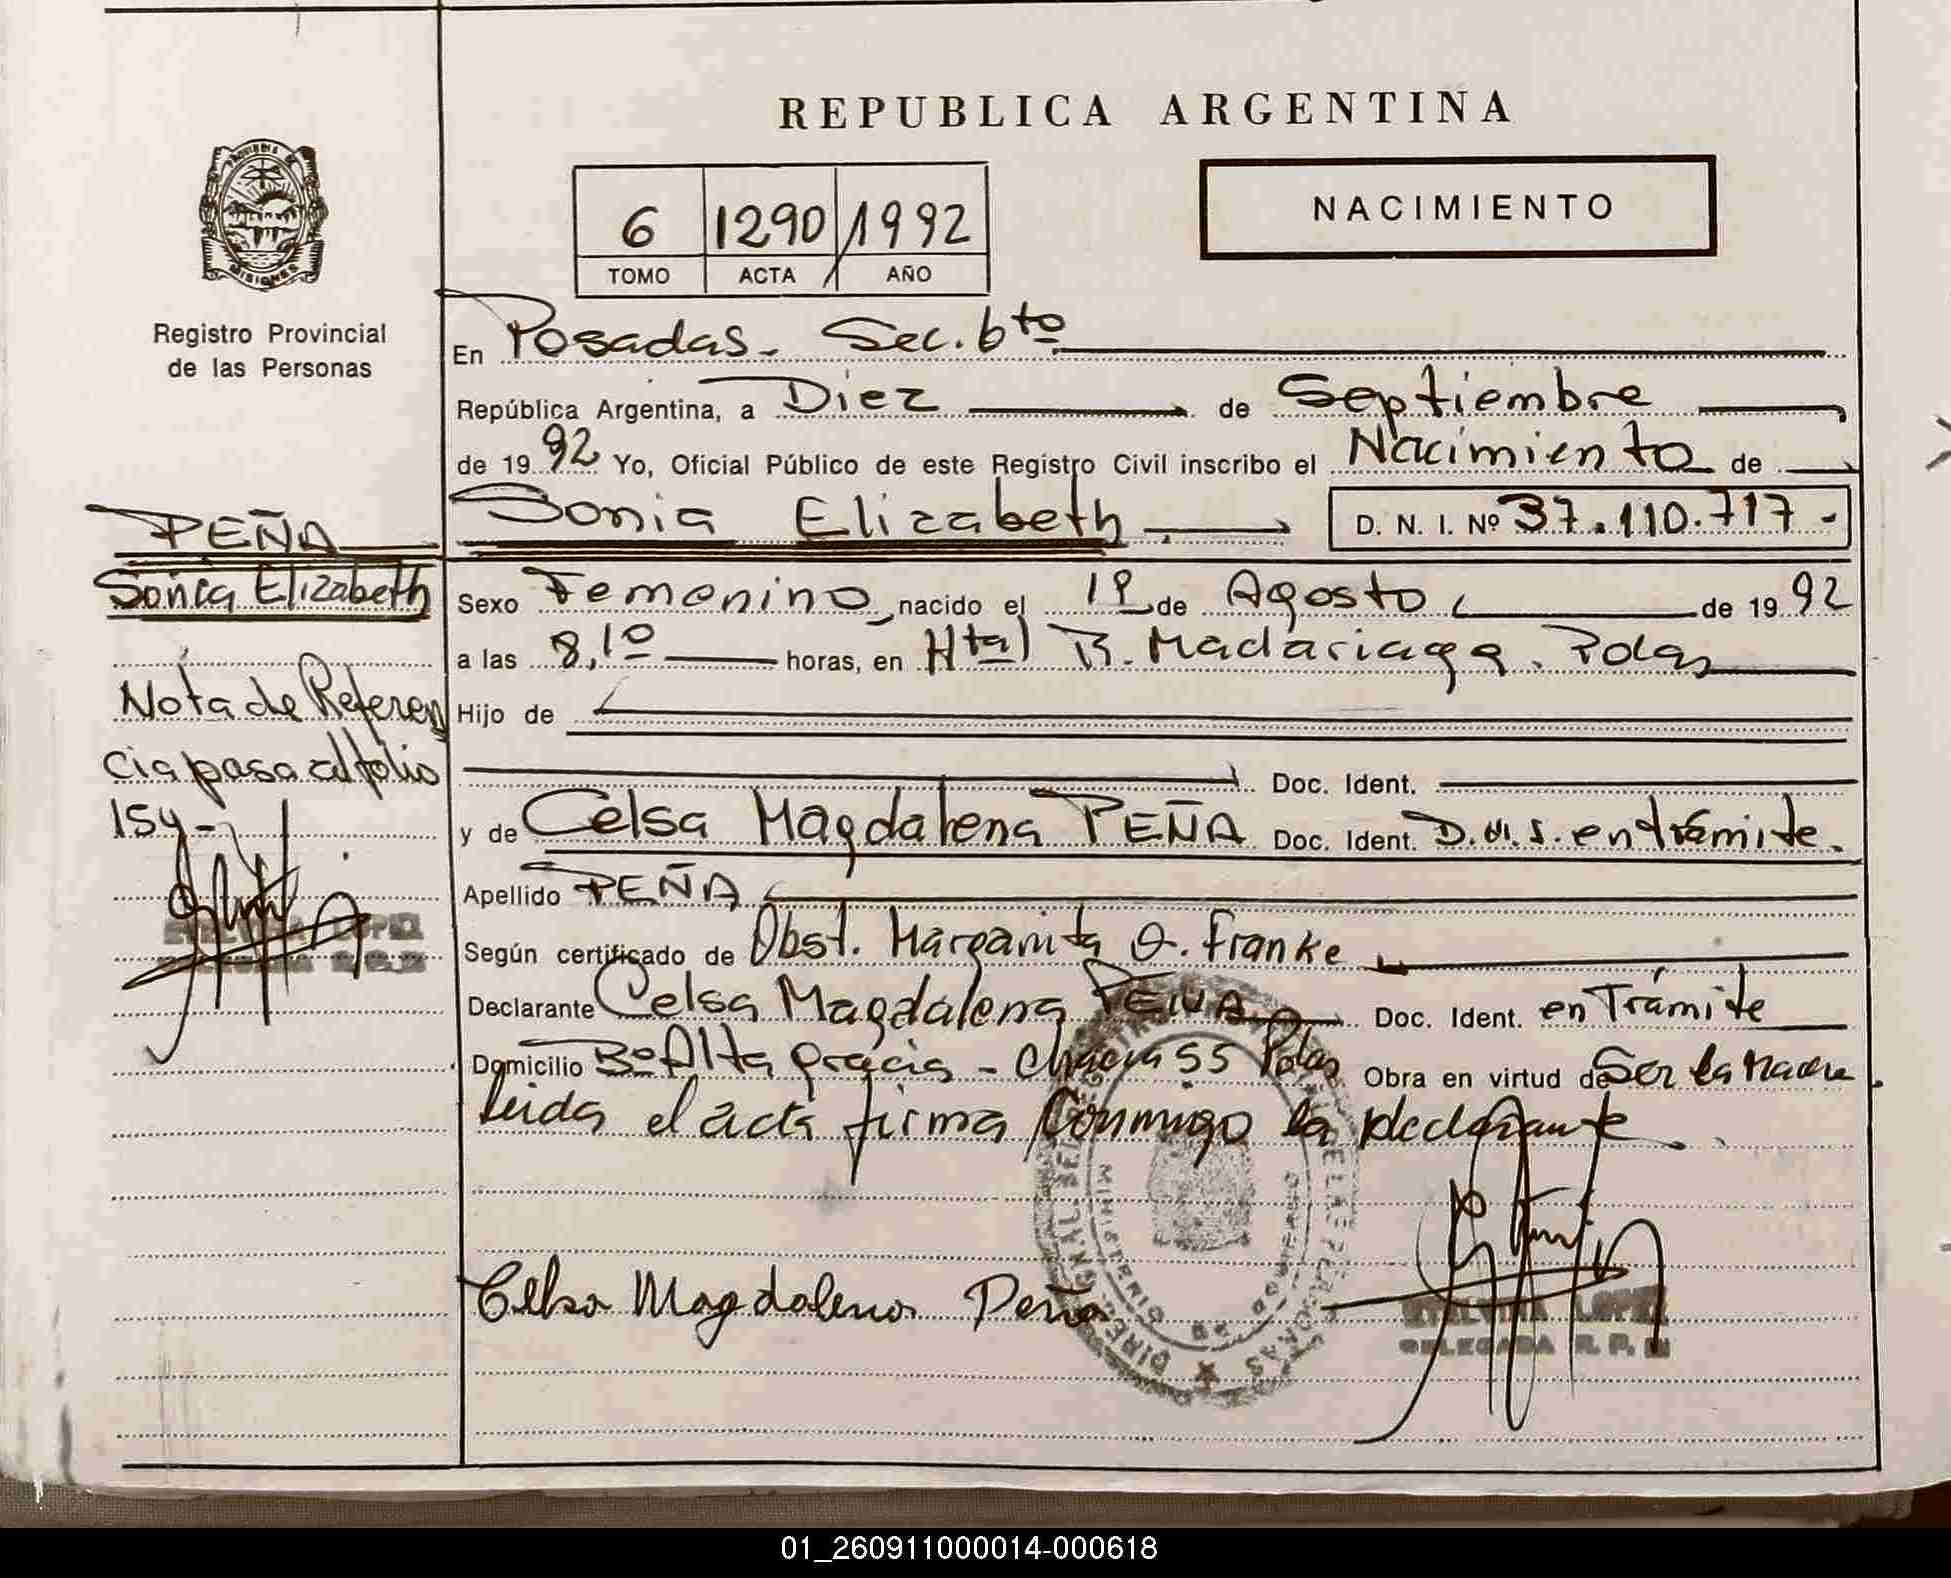 REPUBLICA ARGENTINA
6 1290 1992
TOMO ACTA AÑO
NACIMIENTO
MISIONES
Registro Provincial
de las Personas
PEÑA
Sonia Elizabeth
Nota de Referen
cia pasa al folio
154-
En Posadas. Sec. 6to
República Argentina, a Diez de Septiembre
de 19 92 Yo, Oficial Público de este Registro Civil inscribo el Nacimiento de
Sonia Elizabeth D. N. I. Nº 37.110.717-
Sexo Femenino, nacido el 1º de Agosto de 19 92
a las 8,10 horas, en Htal R. Madariaga. Pdas
Hijo de
Doc. Ident.
y de Celsa Magdalena PEÑA Doc. Ident. D.N.I. en trámite.
Apellido PEÑA
Según certificado de Obst. Margarita O. Franke
Declarante Celsa Magdalena PEÑA Doc. Ident. en Trámite
Domicilio Bº Alta gracia - Chacra 55 Pdas Obra en virtud de Ser la Madre.
Leida el acta firma Conmigo la declarante.
Celsa Magdalena Peña
LOPEZ
DELEGADA R. P.
01_260911000014-000618